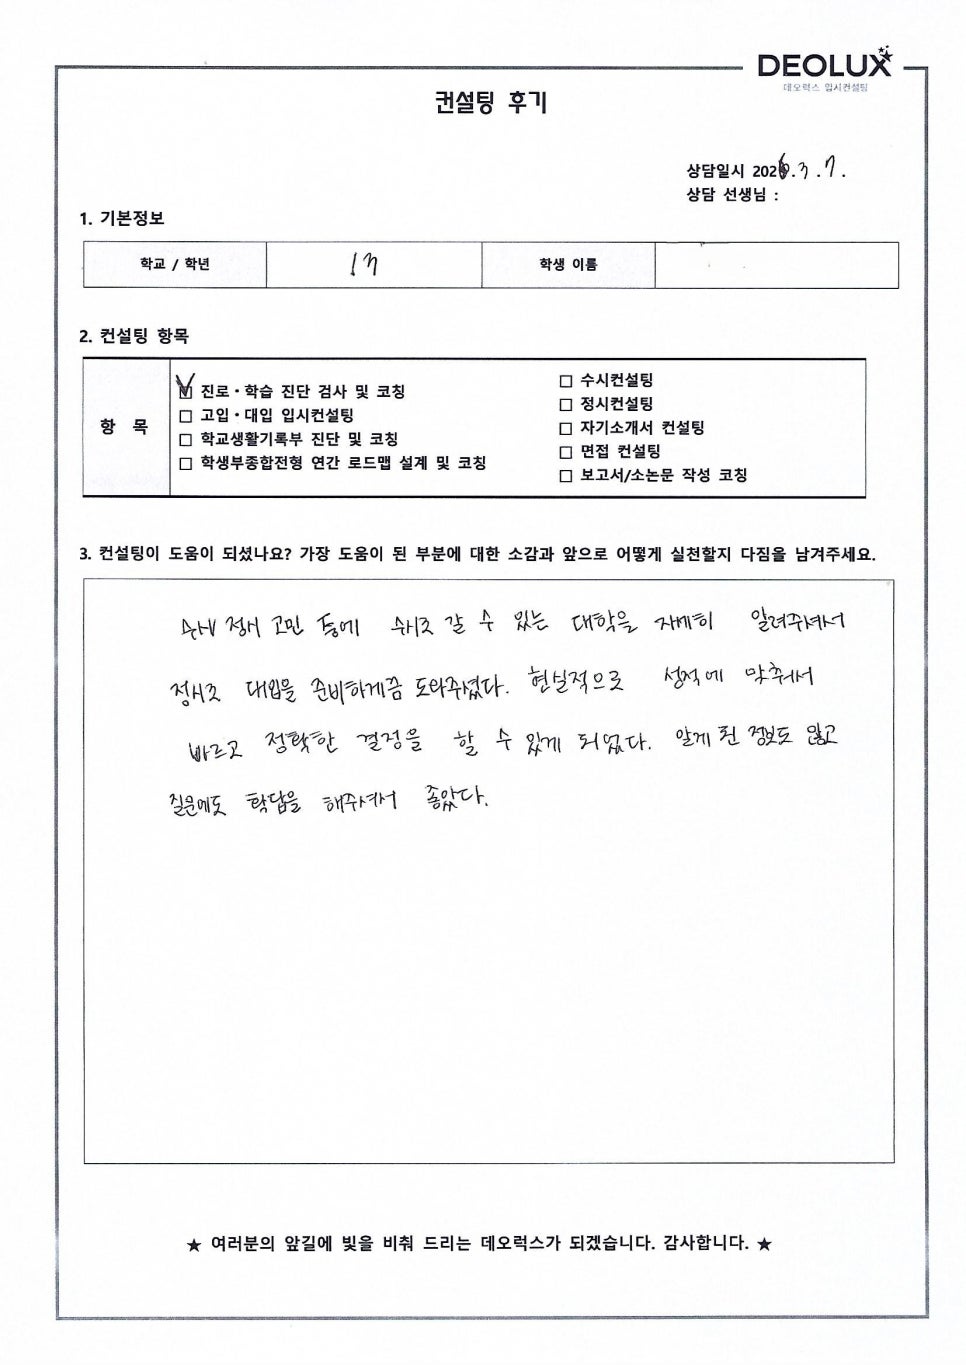 DEOLUX
데오럭스 입시컨설팅
컨설팅 후기
상담일시 2026.3.7.
상담 선생님 :
1. 기본정보
학교 / 학년
학생 이름
2. 컨설팅 항목
항 목
진로·학습 진단 검사 및 코칭
고입·대입 입시컨설팅
학교생활기록부 진단 및 코칭
학생부종합전형 연간 로드맵 설계 및 코칭
수시컨설팅
정시컨설팅
자기소개서 컨설팅
면접 컨설팅
보고서/소논문 작성 코칭
3. 컨설팅이 도움이 되셨나요? 가장 도움이 된 부분에 대한 소감과 앞으로 어떻게 실천할지 다짐을 남겨주세요.
수시 정시 고민 중에 수시로 갈 수 있는 대학을 자세히 알려주셔서
정시로 대입을 준비하게끔 도와주셨다. 현실적으로 성적에 맞춰서
바르고 정확한 결정을 할 수 있게 되었다. 알게 된 정보도 많고
질문에도 확답을 해주셔서 좋았다.
★ 여러분의 앞길에 빛을 비춰 드리는 데오럭스가 되겠습니다. 감사합니다. ★